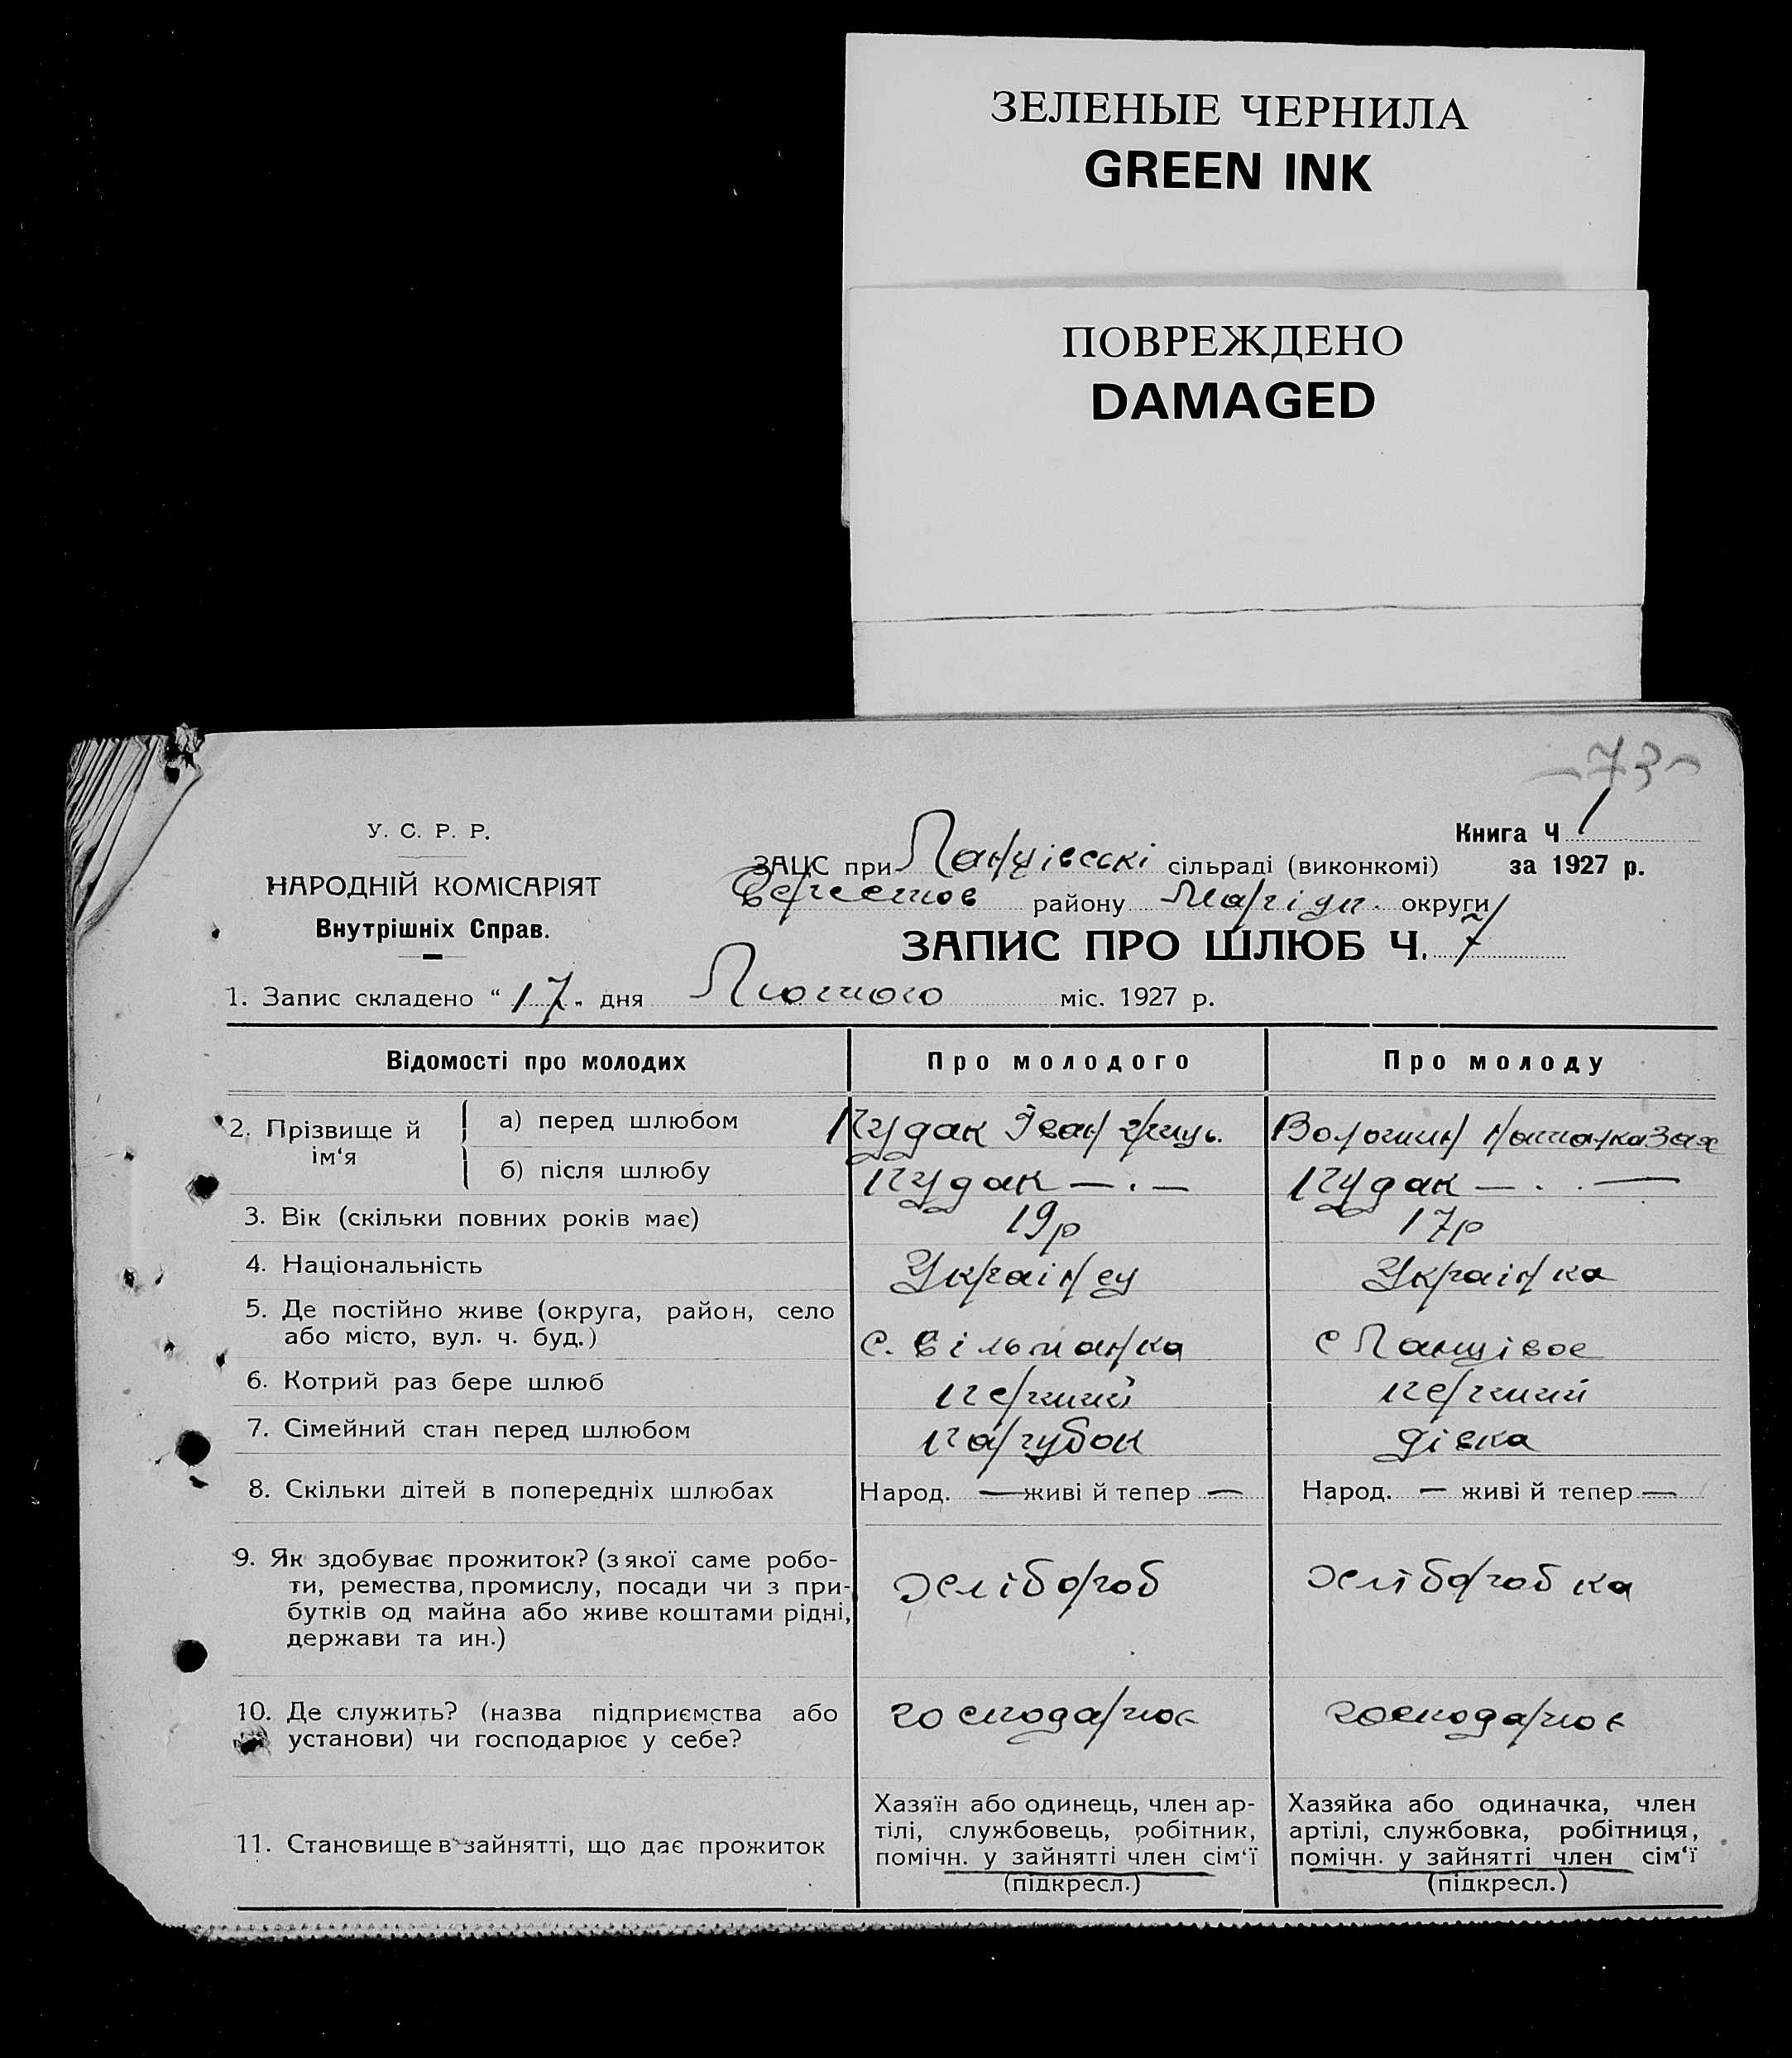 ЗЕЛЕНЫЕ ЧЕРНИЛА
GREEN INK
ПОВРЕЖДЕНО
DAMAGED
-73-
У. С. Р. Р.
НАРОДНІЙ КОМІСАРІЯТ
Внутрішніх Справ.
Книга Ч 1
ЗАЦС при сільраді (виконкомі) за 1927 р.
району округи
ЗАПИС ПРО ШЛЮБ Ч. 7
1. Запис складено “ 17 „ дня Лютого міс. 1927 р.
Відомості про молодих Про молодого Про молоду
2. Прізвище й ім‘я а) перед шлюбом Кудак Іван Волошин
б) після шлюбу Кудак — . — Кудак — . . —
3. Вік (скільки повних років має) 19р 17р
4. Національність Українец Українка
5. Де постійно живе (округа, район, село
або місто, вул. ч. буд.) с. Вільманка с Ланцівое
6. Котрий раз бере шлюб перший перший
7. Сімейний стан перед шлюбом парубок дівка
8. Скільки дітей в попередніх шлюбах Народ. — живі й тепер — Народ. — живі й тепер —
9. Як здобуває прожиток? (з якої саме робо-
ти, ремества, промислу, посади чи з при-
бутків од майна або живе коштами рідні,
держави та ин.) хлібороб хліборобка
10. Де служить? (назва підприємства або
установи) чи господарює у себе? господарює господарює
11. Становище в зайнятті, що дає прожиток
Хазяїн або одинець, член ар-
тілі, службовець, робітник,
помічн. у зайнятті член сім‘ї
(підкресл.)
Хазяйка або одиначка, член
артілі, службовка, робітниця,
помічн. у зайнятті член сім‘ї
(підкресл.)